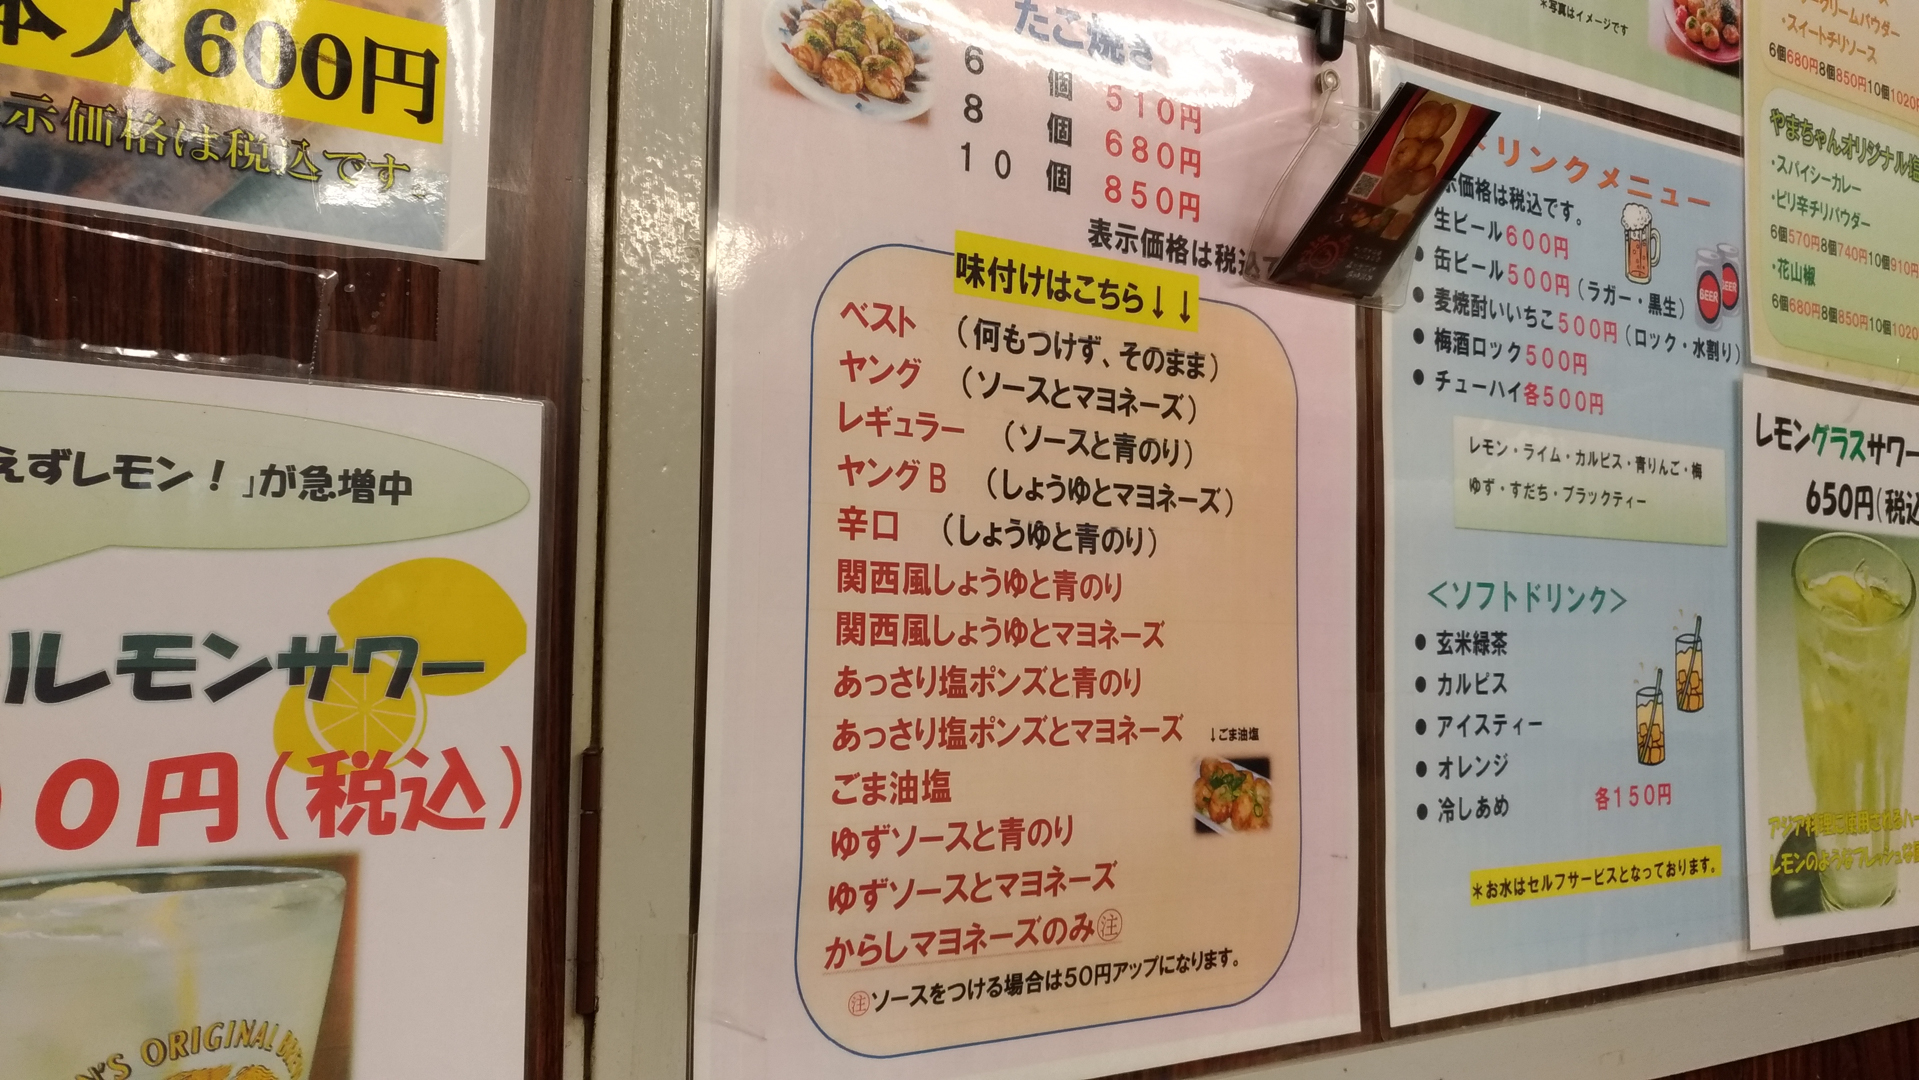 本入600円
示価格は税込です。
えずレモン！」が急増中
ルレモンサワー
00円(税込)
N'S ORIGINAL BREW
たこ焼き
6個 510円
8個 680円
10個 850円
表示価格は税込
味付けはこちら↓↓
ベスト (何もつけず、そのまま)
ヤング (ソースとマヨネーズ)
レギュラー (ソースと青のり)
ヤングB (しょうゆとマヨネーズ)
辛口 (しょうゆと青のり)
関西風しょうゆと青のり
関西風しょうゆとマヨネーズ
あっさり塩ポンズと青のり
あっさり塩ポンズとマヨネーズ
↓ごま油塩
ごま油塩
ゆずソースと青のり
ゆずソースとマヨネーズ
からしマヨネーズのみ㊟
㊟ソースをつける場合は50円アップになります。
*写真はイメージです
ドリンクメニュー
示価格は税込です。
生ビール600円
●缶ビール500円(ラガー・黒生)
●麦焼酎いいちこ500円(ロック・水割り)
●梅酒ロック500円
●チューハイ各500円
BEER
BEER
レモン・ライム・カルピス・青りんご・梅
ゆず・すだち・ブラックティー
<ソフトドリンク>
●玄米緑茶
●カルピス
●アイスティー
●オレンジ
●冷しあめ
各150円
*お水はセルフサービスとなっております。
クリームパウダー
・スイートチリソース
6個680円8個850円10個1020
やまちゃんオリジナル塩
・スパイシーカレー
・ピリ辛チリパウダー
6個570円8個740円10個910円
・花山椒
6個680円8個850円10個1020
レモングラスサワー
650円(税込
アジア料理に使用されるハー
レモンのようなフレッシュな